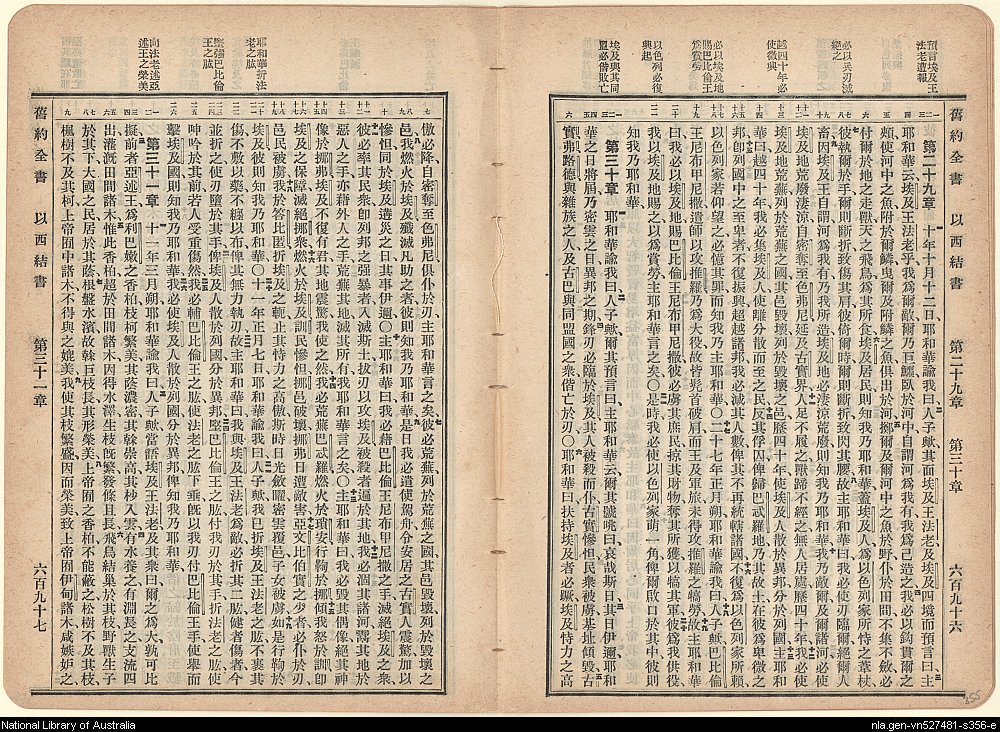 舊約全書 以西結書 第二十九章 第三十章 六百九十六
預言埃及王
法老遭報
必以兵刃滅
絕之
越四十年必
使微興
必以埃及地
賜巴比倫王
爲賞勞
以色列必復
興起
埃及與其同
盟必偕敗亡
第二十九章 十年十月十二日耶和華諭我曰人子歟其面埃及王法老及埃及四境而預言曰主
耶和華云埃及王法老乎我爲爾敵爾乃巨鱷臥於河中自謂河爲我有我爲己造之我必以鈎貫爾之
頰使河中之魚附於爾鱗曳爾及附鱗之魚俱出於河擲爾及河中之魚於野仆於田間不集不斂必
付爾於地之走獸天之飛鳥爲其所食埃及居民則知我乃耶和華蓋埃及人爲以色列家所恃之葦杖
彼執爾於手爾則斷折致傷其肩彼倚爾時爾則斷折致閃其腰故主耶和華曰我必使刃臨爾絕爾人
畜因埃及王自謂河爲我有乃我所造埃及地必淒涼荒廢則知我乃耶和華我乃敵爾及爾諸河必使
埃及地荒廢淒涼自密奪至色弗尼延及古實界人足不履之獸蹄不經之無人居處歷四十年我必使
埃及地荒涼於荒涼之國其邑毀壞列於毀壞之邑歷四十年我使埃及人散於異邦分於列國主耶和
華曰越四十年我必集埃及人使離分散而至之民反其俘囚俾歸巴忒羅地乃其故土在彼爲卑微之
邦卽列國中之至卑者不復振興超越諸邦我必滅其人數俾其不再統轄諸國不復爲以色列家所賴
以色列家若仰望之必憶其罪而知我乃主耶和華〇二十七年正月朔耶和華諭我曰人子歟巴比倫
王尼布甲尼撒遣師以攻推羅乃爲大役故皆髠首破肩而王及軍旅未得攻推羅之犒勞故主耶和華
曰我必以埃及地賜巴比倫王尼布甲尼撒彼必虜其庶民掠其財物奪其所獲以犒其軍彼爲我供役
我以埃及地賜之以爲賞勞主耶和華言之矣〇是時我必使以色列家萌一角俾爾啟口於其中彼則
知我乃耶和華
第三十章 耶和華諭我曰人子歟爾其預言曰主耶和華云爾其號咷曰哀哉斯日其日伊邇耶和
華之日將屆乃密雲之日異邦之期鋒刃必臨於埃及其人被殺而仆古實慘怛民衆被虜基址傾毀古
實弗路德與雜族之人及古巴與同盟國之衆偕亡於刃〇耶和華曰扶持埃及者必蹶埃及恃力之高
舊約全書 以西結書 第三十一章 六百九十七
耶和華折法
老之肱
堅強巴比倫
王之肱
向法老述亞
述王之榮美
傲必降自密奪至色弗尼俱仆於刃主耶和華言之矣彼必荒蕪列於荒蕪之國其邑毀壞列於毀壞之
邑我燃火於埃及殲滅凡助之者彼則知我乃耶和華是日我必遣使駕舟令安居之古實人震驚加以
慘怛同於埃及遘災之日其事伊邇〇主耶和華曰我必藉巴比倫王尼布甲尼撒之手滅絕埃及之衆
彼必率其民衆卽列邦之強暴者入滅斯土拔刃以攻埃及被殺者遍於其地我必涸其諸河鬻其地於
惡人之手亦藉外人之手荒蕪其地滅其所有我耶和華言之矣〇主耶和華曰我必毀其偶像絕其神
像於挪弗埃及不復有君其地震驚我使之然我必荒蕪巴忒羅燃火於瑣安行鞫於挪傾我怒於訓卽
埃及之保障滅絕挪衆燃火於埃及訓民慘怛挪邑破壞挪弗日遭敵害亞文比伯實之少者必仆於刃
邑民被虜我於答比匿折埃及之軛止其恃力之高傲斯時日光斂曜密雲覆邑子女被虜如是行鞫於
埃及彼則知我乃耶和華〇十一年正月七日耶和華諭我曰人子歟我已折埃及王法老之肱不裹其
傷不敷以藥不纏以布俾其無力執刃故主耶和華曰我與埃及王法老爲敵必折其二肱健者傷者今
並折之使刃墮於其手俾埃及人散於列國分於異邦堅巴比倫王之肱付我刃於其手折法老之肱使
呻吟於其前若人受重傷然我必輔巴比倫王之肱使法老之肱下垂旣以我刃付巴比倫王手使舉而
擊埃及國則知我乃耶和華我必使埃及人散於列國分於異邦俾知我乃耶和華
第三十一章 十一年三月朔耶和華諭我曰人子歟當語埃及王法老及其衆曰爾之爲大孰可比
擬前者亞述王爲利巴嫩之香柏枝柯繁美其蔭濃密其榦崇高其杪入雲有水養之有淵長之支流四
出灌漑田間諸木惟此香柏超於田間諸木因得水澤生枝旣繁發條且長飛鳥結巢於其枝野獸生子
於其下大國之民居於其蔭根盤水濱故榦巨枝長其形榮美上帝囿之香柏不能蔽之松樹不及其枝
楓樹不及其柯上帝囿中諸木不得與之媲美我使其枝繁盛因而榮美致上帝囿伊甸諸木咸嫉妒之
National Library of Australia
nla.gen-vn527481-s356-e